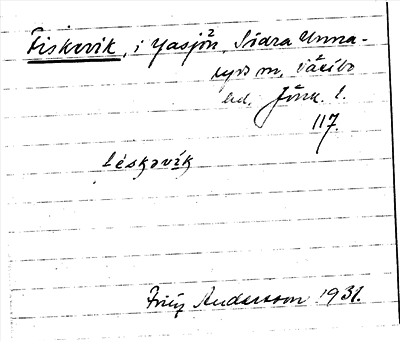 Fiskvik, i Vasjön, Södra Unna-
ryd sn, Västbo
hd, Jönk. l.
117.
féskəvik
Fritz Andersson 1931.